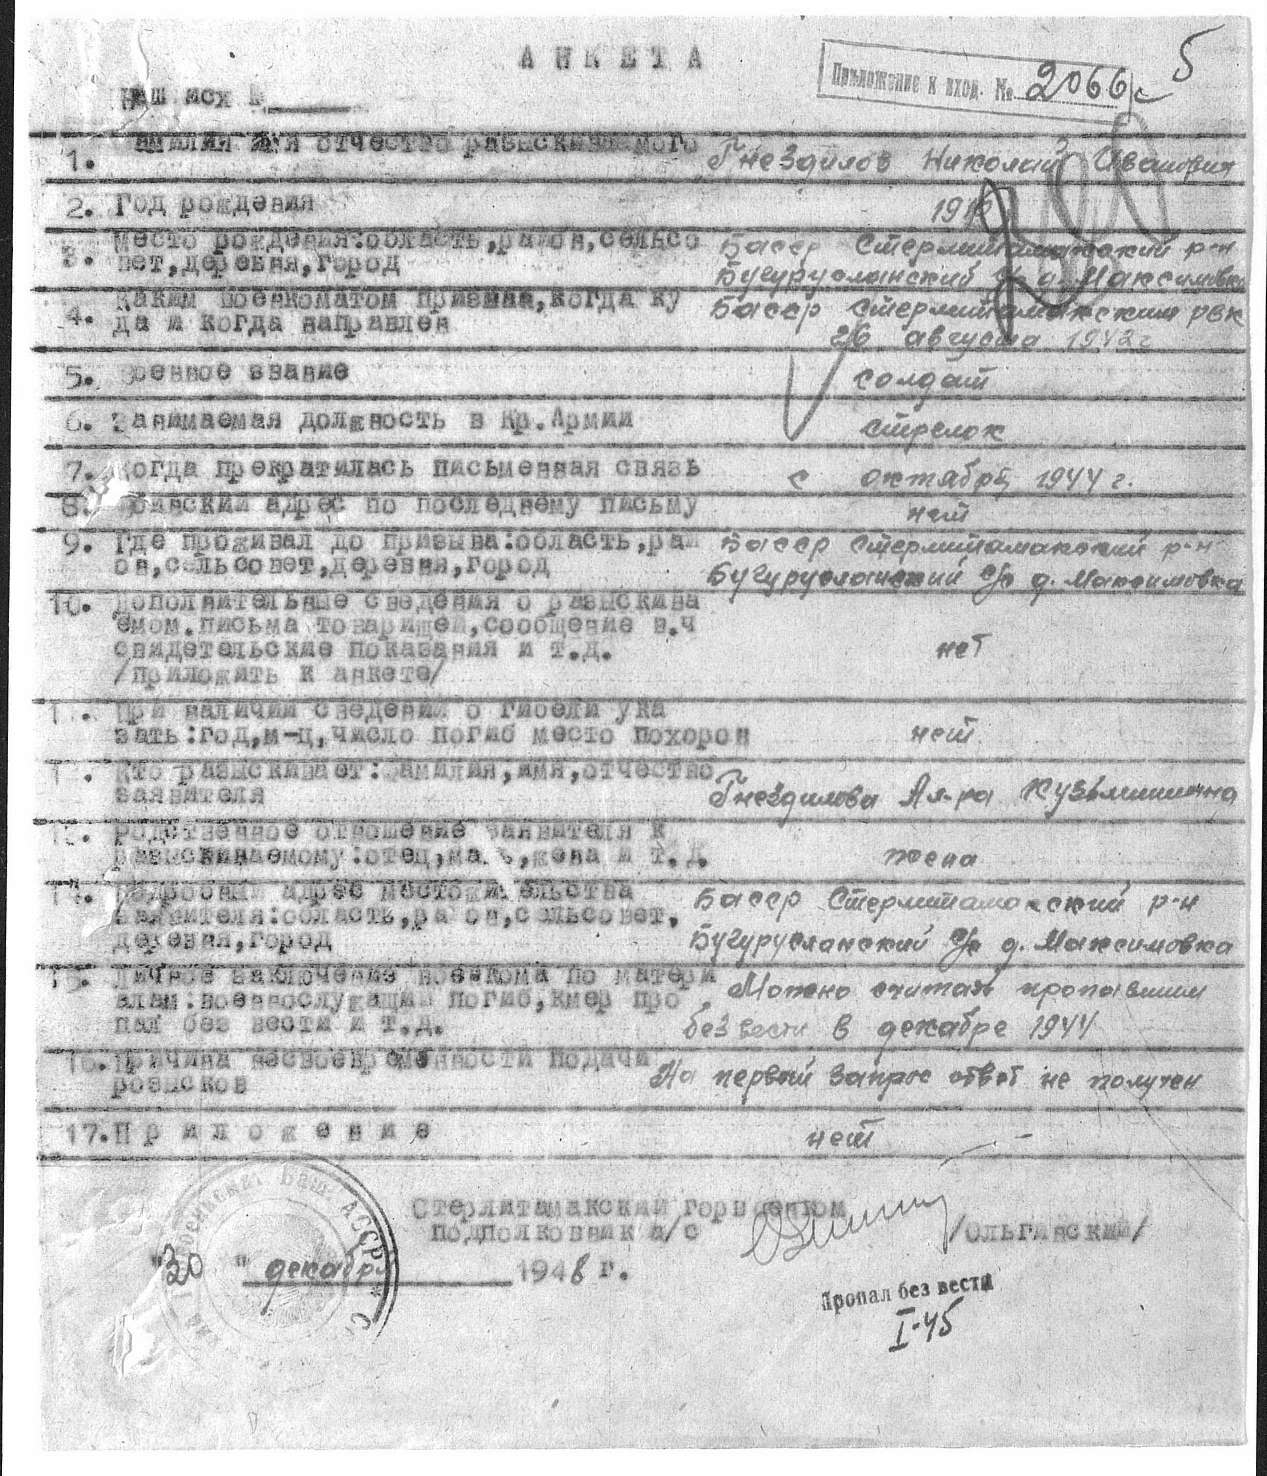 АНКЕТА
Приложение к вход. № 2066 с
5
Наш исх №
1. Фамилия имя отчество разыскиваемого Гнездилов Николай Иванович
2. Год рождения
3. Место рождения:область,район,сельсо Басср Стерлитамакский р-н
вет,деревня,город Бугурусланский с/с д. Максимовка
4. Каким военкоматом призван,когда ку Басср Стерлитамакским рвк
да и когда направлен 26 августа 1942 г
5. Военное звание солдат
6. Занимаемая должность в Кр.Армии стрелок
7. Когда прекратилась письменная связь с октября 1944 г.
8. Воинский адрес по последнему письму нет
9. Где проживал до призыва:область,рай Басср Стерлитамакский р-н
он,сельсовет,деревня,город Бугурусланский с/с д. Максимовка
10. Дополнительные сведения о разыскива
емом.письма товарищей,сообщение в.ч
свидетельские показания и т.д. нет
/приложить к анкете/
11. При наличии сведений о гибели ука
зать:год,м-ц,число погиб место похорон нет
12. Кто разыскивает:фамилия,имя,отчество
заявителя Гнездилова Ал-ра Кузьминична
13. Родственное отношение заявителя к
разыскиваемому:отец,мать,жена и т.д. жена
14. Подробный адрес местожительства Басср Стерлитамакский р-н
заявителя:область,район,сельсовет,
деревня,город Бугурусланский с/с д. Максимовка
15. Личное заключение военкома по матери
алам:военнослужащий погиб,умер про Можно считать пропавшим
пал без вести и т.д. без вести в декабре 1944
16. Причина несвоевременности подачи
розысков На первый запрос ответ не получен
17. Приложение нет
Стерлитамакский горвоенком
подполковник а/с /Ольгинский/
"30" декабря 1948 г.
Пропал без вести
I-45